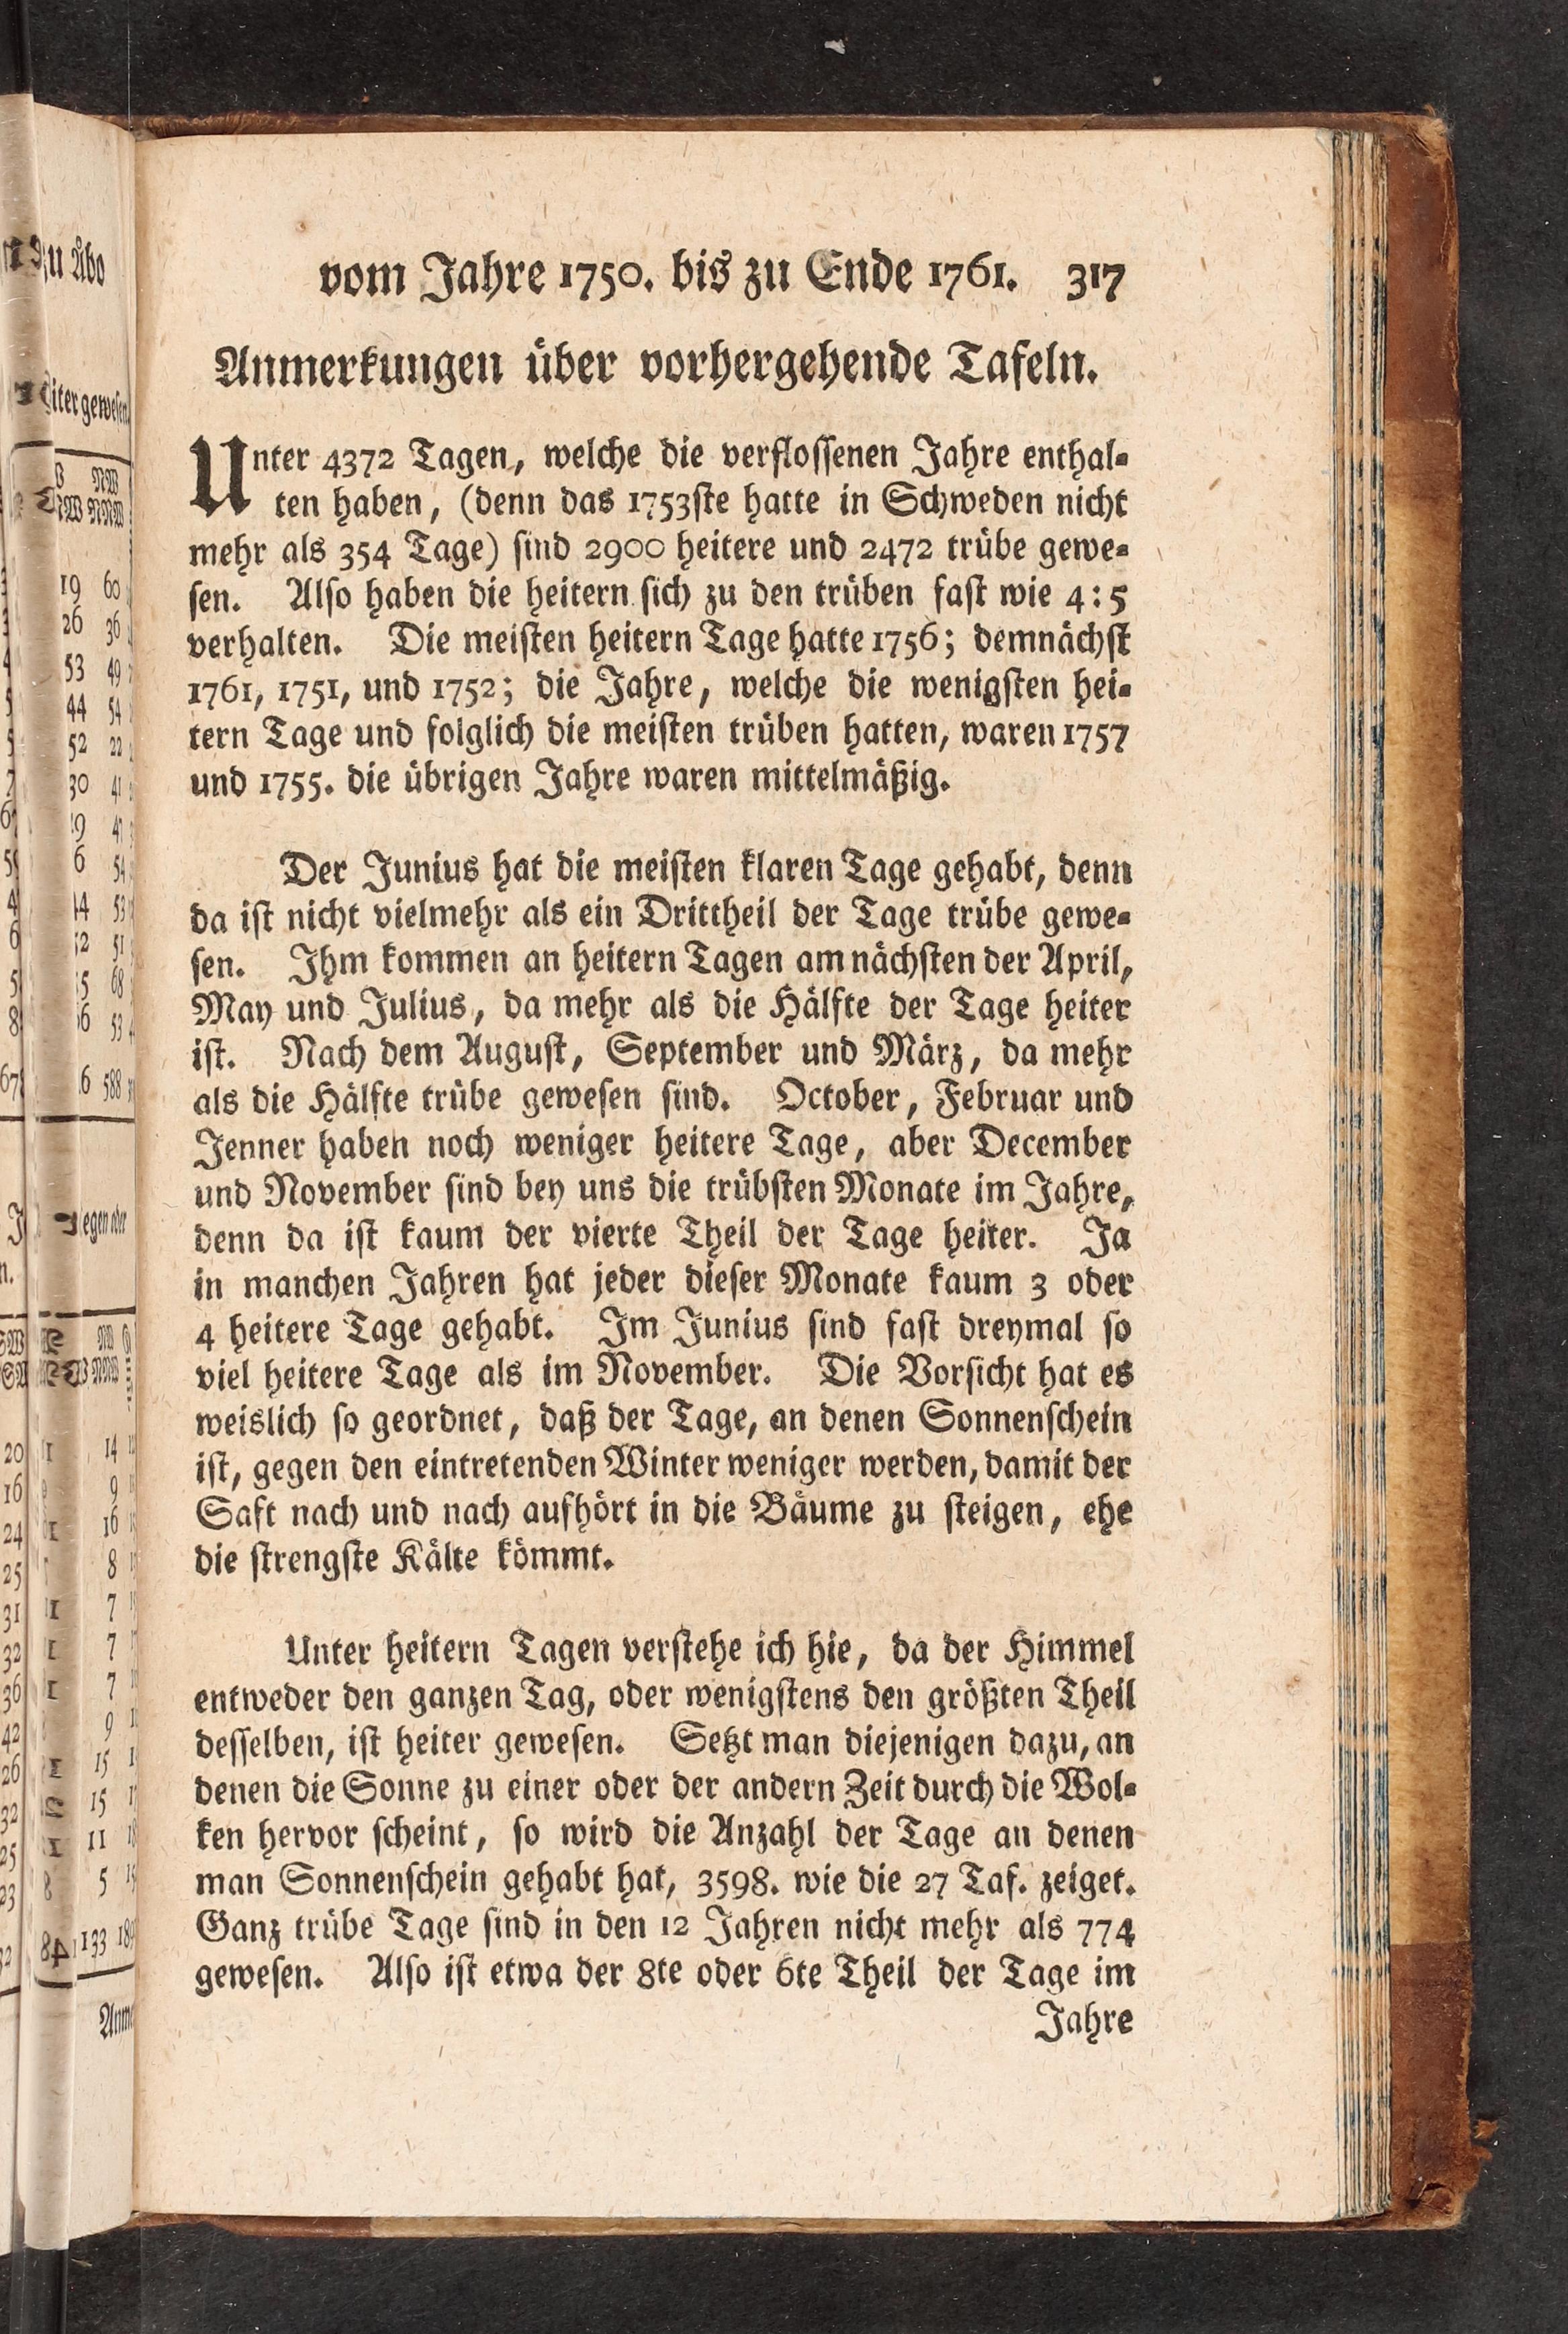 vom Jahre 1750. bis zu Ende 1761. 317
Anmerkungen über vorhergehende Tafeln.
Unter 4372 Tagen, welche die verflossenen Jahre enthal-
ten haben, (denn das 1753ste hatte in Schweden nicht
mehr als 354 Tage) sind 2900 heitere und 2472 trübe gewe-
sen. Also haben die heitern sich zu den trüben fast wie 4:5
verhalten. Die meisten heitern Tage hatte 1756; demnächst
1761, 1751, und 1752; die Jahre, welche die wenigsten hei-
tern Tage und folglich die meisten trüben hatten, waren 1757
und 1755. die übrigen Jahre waren mittelmäßig.
Der Junius hat die meisten klaren Tage gehabt, denn
da ist nicht vielmehr als ein Drittheil der Tage trübe gewe-
sen. Ihm kommen an heitern Tagen am nächsten der April,
May und Julius, da mehr als die Hälfte der Tage heiter
ist. Nach dem August, September und März, da mehr
als die Hälfte trübe gewesen sind. October, Februar und
Jenner haben noch weniger heitere Tage, aber December
und November sind bey uns die trübsten Monate im Jahre,
denn da ist kaum der vierte Theil der Tage heiter. Ja
in manchen Jahren hat jeder dieser Monate kaum 3 oder
4 heitere Tage gehabt. Im Junius sind fast dreymal so
viel heitere Tage als im November. Die Vorsicht hat es
weislich so geordnet, daß der Tage, an denen Sonnenschein
ist, gegen den eintretenden Winter weniger werden, damit der
Saft nach und nach aufhört in die Bäume zu steigen, ehe
die strengste Kälte kömmt.
Unter heitern Tagen verstehe ich hie, da der Himmel
entweder den ganzen Tag, oder wenigstens den größten Theil
desselben, ist heiter gewesen. Setzt man diejenigen dazu, an
denen die Sonne zu einer oder der andern Zeit durch die Wol-
ken hervor scheint, so wird die Anzahl der Tage an denen
man Sonnenschein gehabt hat, 3598. wie die 27 Taf. zeiget.
Ganz trübe Tage sind in den 12 Jahren nicht mehr als 774
gewesen. Also ist etwa der 8te oder 6te Theil der Tage im
Jahre